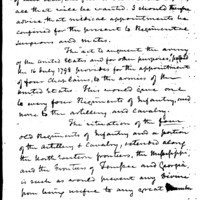 all that will be wanted. I should therefore
advise, that medical appointments be
confined for the present to Regimental
Surgeons and mates.
The act to augment the army
of the United States and for other purposes, passed
the 16 July 1798 provides for the appointment
of four chaplains, to the armies of the
United States. This would give one
to every four Regiments of Infantry, and
none to the artillery and Cavalry.
The situation of the four
old Regiments of Infantry and a portion
of the Artillery & Cavalry, extended along
the North western frontiers, the Mississippi
and the frontiers of Tennessee and Georgia,
is such as would prevent any Divine
from being useful to any great number